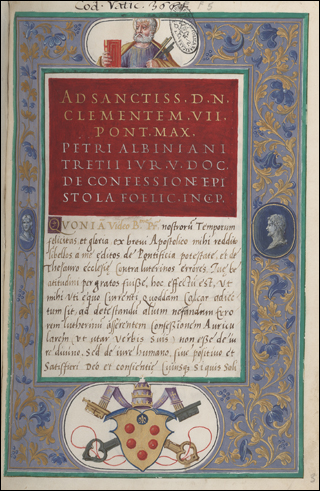 Cod. Vatic.
AD SANCTISS · D · N ·
CLEMENTEM · VII ·
PONT · MAX ·
PETRI ALBINIANI
TRETII IVR · V · DOC
DE CONFESSION· EPI
STOLA FOELIC · INCP ·
QVONIĀ nostrorū Temporum
felicitas et gloria ex breui Apostolico mihi
libellos a me editos de Pontificia potestate, et de
Thesauro ecclesie Contra luterinos errores, Tue be
atitudini pergratos fuisse, hoc effectū est, Ut
mihi Uti equo Currenti quoddam Calcar
tum sit, ad detestandū alium nefandum
rem lutherinū asserentem Confessionem Auricu
larem (ut utar verbis suis) non esse de iu
re diuino, Sed de iure humano, siue positiuo et
Satisfieri Deo et Conscientie Si quis Soli